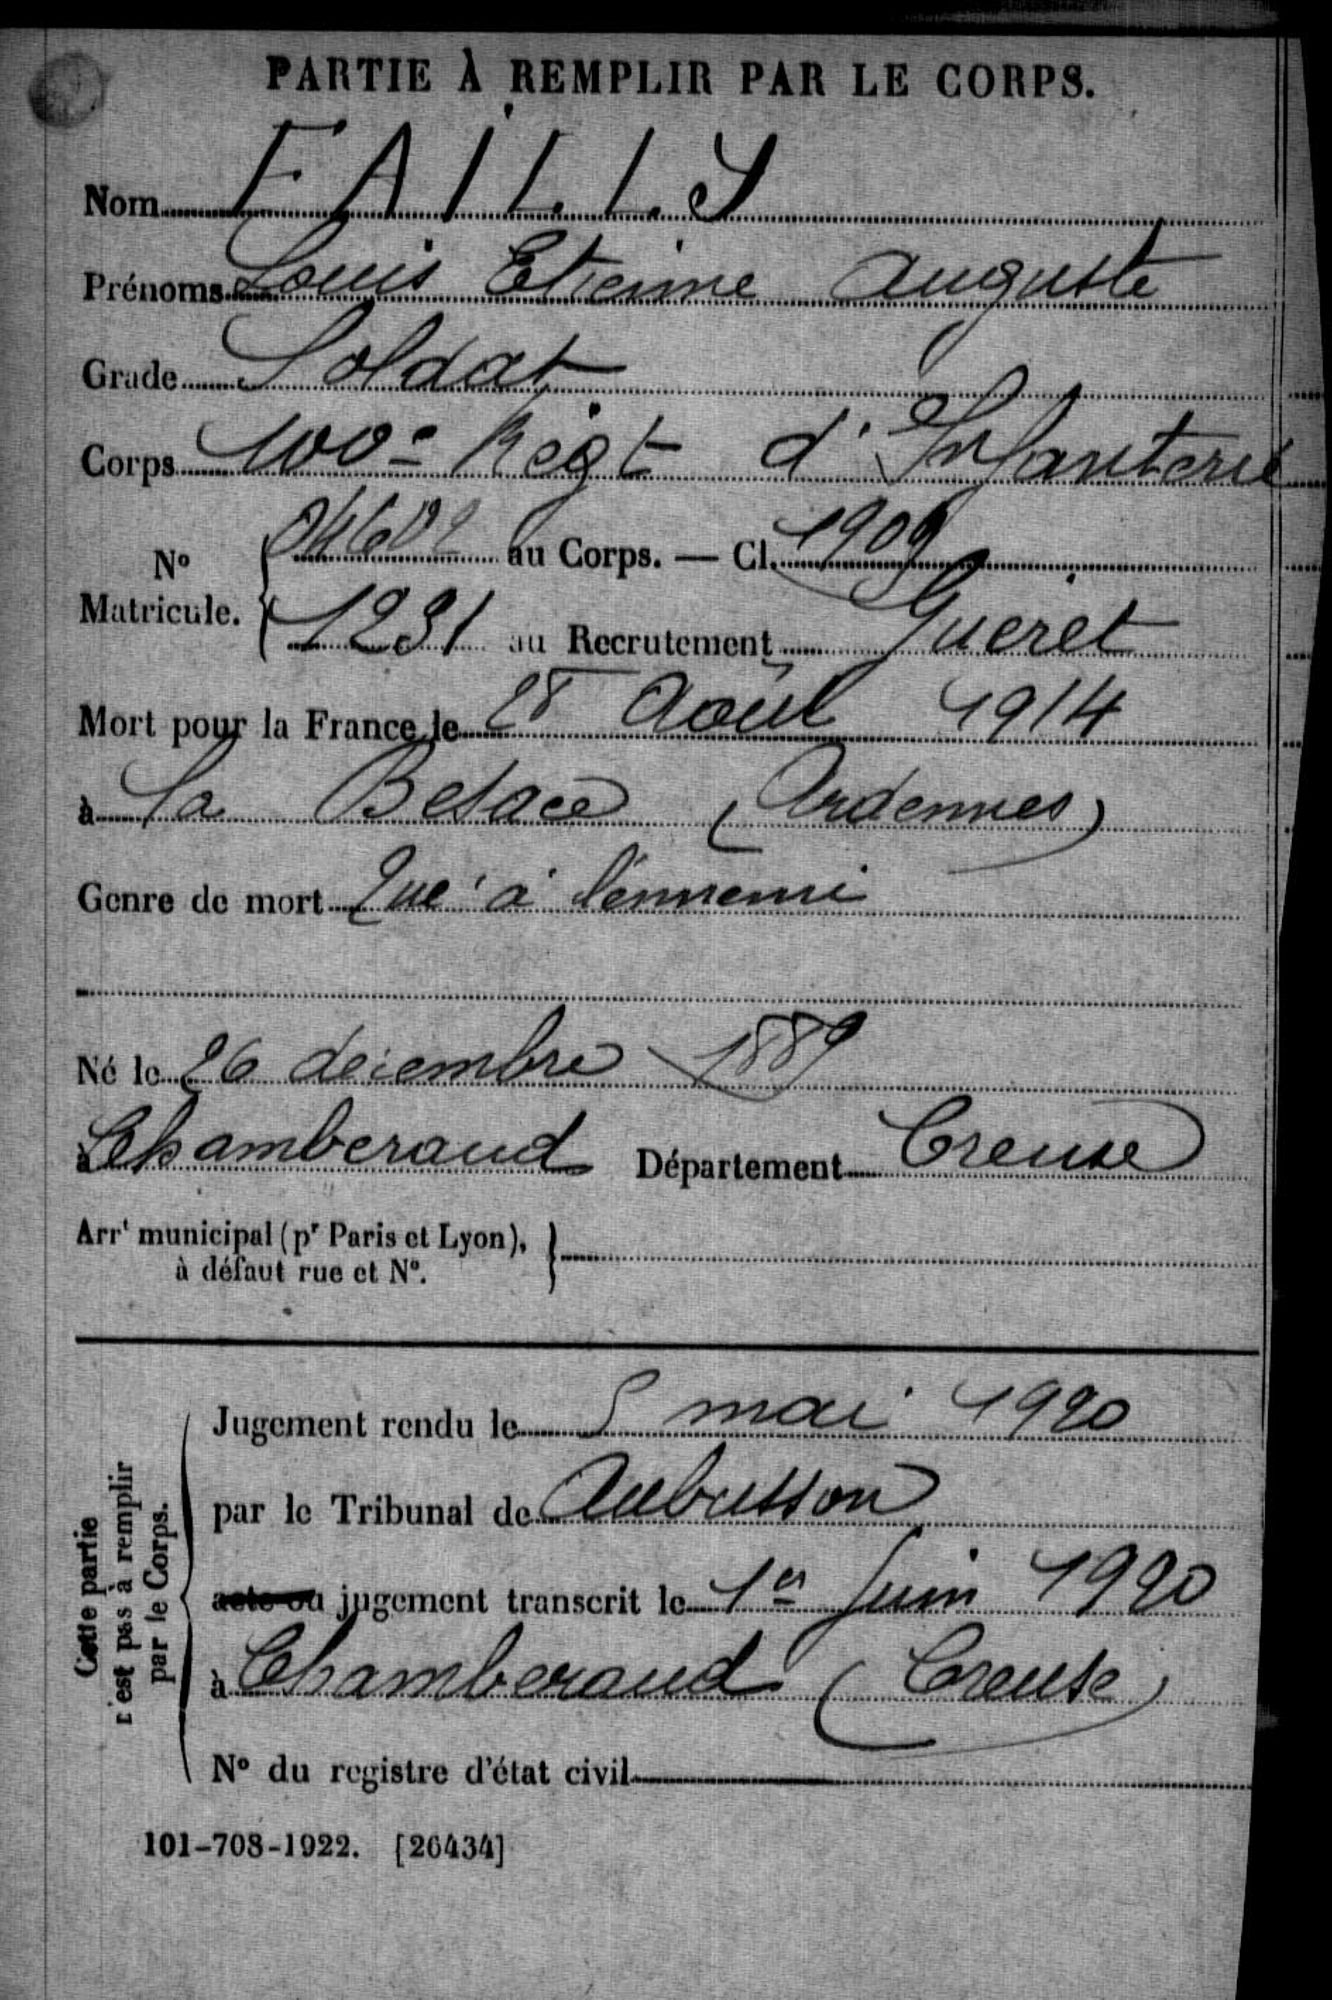 PARTIE À REMPLIR PAR LE CORPS.
Nom FAILLY
Prénoms Louis Etienne Auguste
Grade Soldat
Corps 100e Régt d'Infanterie
No Matricule. 04602 au Corps. — Cl. 1909
1231 au Recrutement Guéret
Mort pour la France le 28 Août 1914
à la Besace (Ardennes)
Genre de mort Tué à l'ennemi
Né le 26 décembre 1889
à Chamberaud Département Creuse
Arrt municipal (pr Paris et Lyon),
à défaut rue et No.
Cette partie
n'est pas à remplir
par le Corps.
Jugement rendu le 5 mai 1920
par le Tribunal de Aubusson
acte ou jugement transcrit le 1er Juin 1920
à Chamberaud (Creuse)
No du registre d'état civil
101-708-1922. [26434]